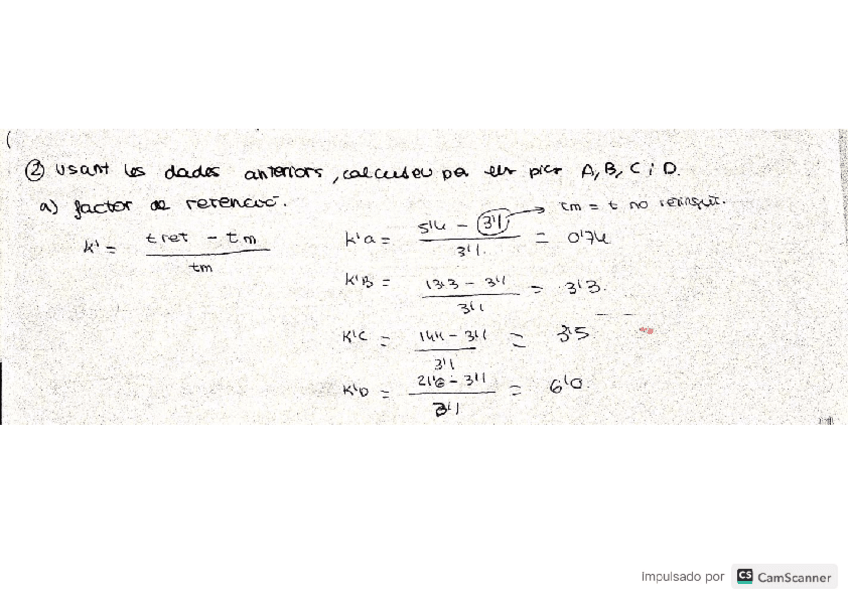 ② Usant les dades anteriors, calculeu per els pics A, B, C i D.
a) factor de retenció.
k' = (t ret - tm) / tm
k'a = (5'4 - 3'1) / 3'1 = 0'74 → tm = t no retingut.
k'B = (13'3 - 3'1) / 3'1 = 3'3.
k'C = (14'1 - 3'1) / 3'1 = 3'5
k'D = (21'6 - 3'1) / 3'1 = 6'0.
Impulsado por CS CamScanner